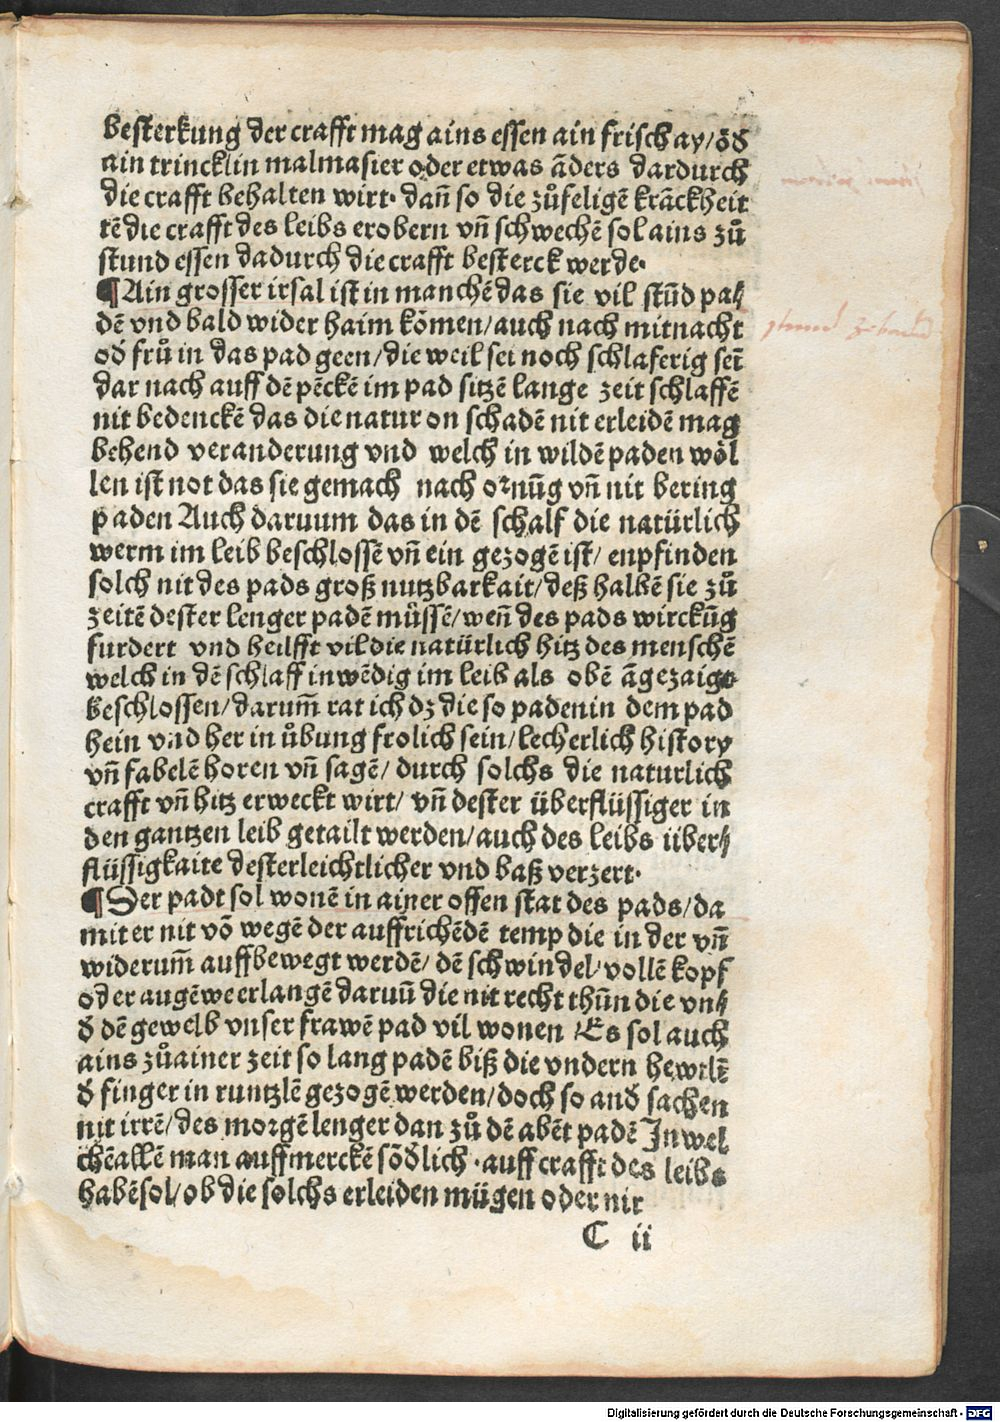 besterkung der crafft mag ains essen ain frisch ay/ od̄
ain trincklin malmasier oder etwas āders dardurch
die crafft behalten wirt· dañ so die zůfeligē krāckheit
tē die crafft des leibs erobern vñ schwechē sol ains zů
stund essen dadurch die crafft besterck werde·
¶Ain grosser irsal ist in manchē das sie vil stūd pa⸗
dē vnd bald wider haim kōmen/ auch nach mitnacht
od̄ frů in das pad geen/ die weil sei noch schlaferig seī
dar nach auff dē pēckē im pad sitzē lange zeit schlaffē
nit bedenckē das die natur on schadē nit erleidē mag
behend veranderung vnd welch in wildē paden wöl
len ist not das sie gemach nach oꝛnūg vñ nit bering
paden Auch daruum das in dē schalf die natürlich
werm im leib beschlossē vñ ein gezogē ist/ enpfinden
solch nit des pads groß nutzbarkait/ deß halbē sie zů
zeitē dester lenger padē müssē/ weñ des pads wirckūg
furdert vnd heilfft vil die natürlich hitz des menschē
welch in dē schlaff inwēdig im leib als obē āgezaigt
beschlossen/ darum̄ rat ich dz die so paden in dem pad
hein vnd her in ůbung frolich sein/ lecherlich history
vñ fabelē horen vñ sagē/ durch solchs die naturlich
crafft vñ hitz erweckt wirt/ vñ dester überflüssiger in
den gantzen leib getailt werden/ auch des leibs über⸗
flüssigkaite dester leichtlicher vnd baß verzert·
¶Der padt sol wonē in ainer offen stat des pads/ da
mit er nit vō wegē der auffrichēdē temp die in der vñ
widerum̄ auffbewegt werdē/ dē schwindel/ vollē kopf
oder augē we erlangē daruū die nit recht thūn die vn⸗
d̄ dē gewelb vnser frawē pad vil wonen /Es sol auch
ains zů ainer zeit so lang padē biß die vndern hewtlē
d̄ finger in runtzlē gezogē werden/ doch so and̄ sachen
nit irrē/ des moꝛgē lenger dan zů dē abēt padē In wel
chē allē man auffmerckē sōd̄lich ·auff crafft des leibs
habē sol/ ob die solchs erleiden mügen oder nit
C ii
Digitalisierung gefördert durch die Deutsche Forschungsgemeinschaft - DFG